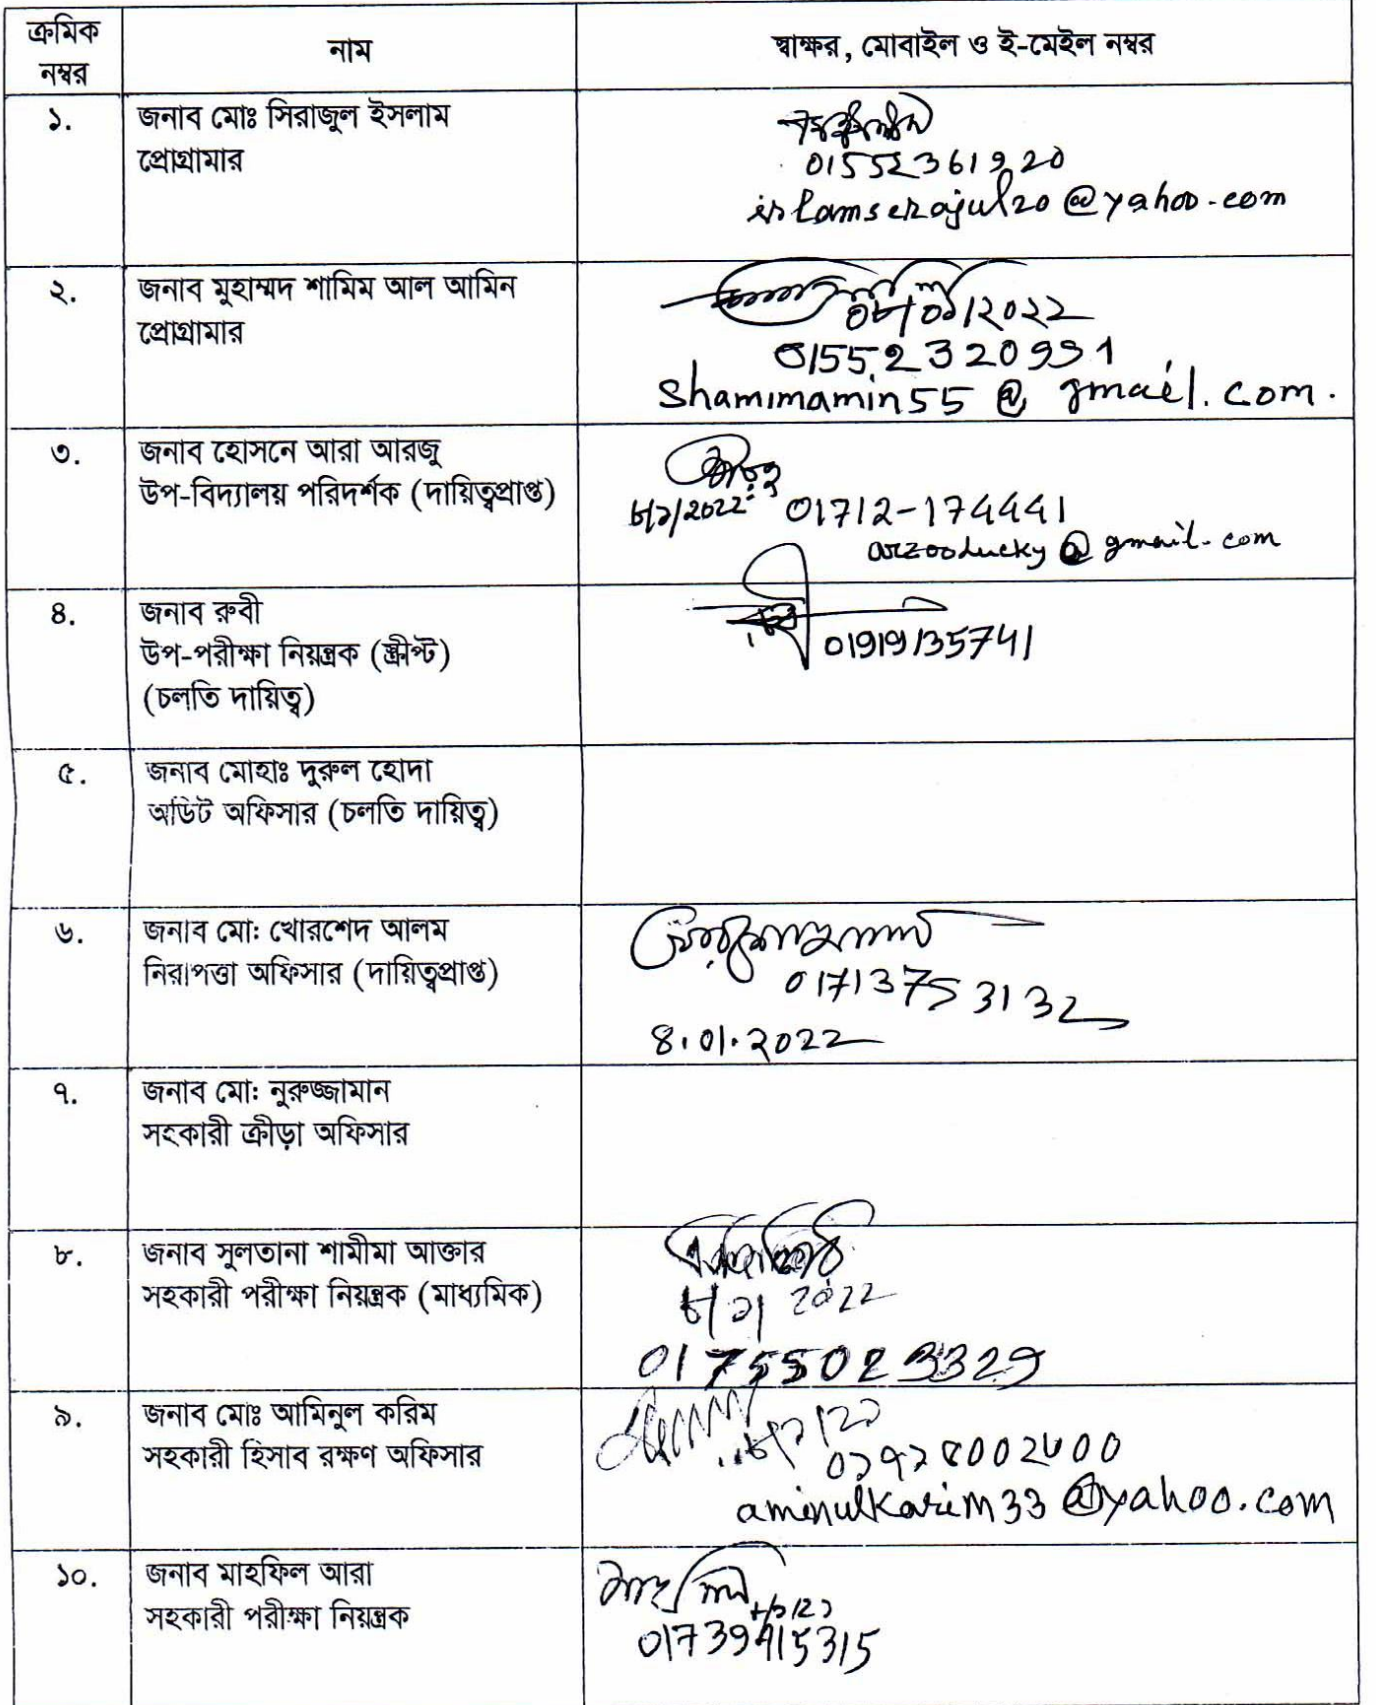 ক্রমিক
নম্বর
নাম
স্বাক্ষর, মোবাইল ও ই-মেইল নম্বর
১.
জনাব মোঃ সিরাজুল ইসলাম
প্রোগ্রামার
01552361920
islamserajul20@yahoo.com
২.
জনাব মুহাম্মদ শামিম আল আমিন
প্রোগ্রামার
০৮/০১/২০২২
01552320991
shamimamin55@gmail.com.
৩.
জনাব হোসনে আরা আরজু
উপ-বিদ্যালয় পরিদর্শক (দায়িত্বপ্রাপ্ত)
৮/১/2022 01712-174441
arzoolucky@gmail.com
৪.
জনাব রুবী
উপ-পরীক্ষা নিয়ন্ত্রক (স্ক্রীপ্ট)
(চলতি দায়িত্ব)
01919135741
৫.
জনাব মোহাঃ দুরুল হোদা
অডিট অফিসার (চলতি দায়িত্ব)
৬.
জনাব মো: খোরশেদ আলম
নিরাপত্তা অফিসার (দায়িত্বপ্রাপ্ত)
01713753132
8.01.2022
৭.
জনাব মো: নুরুজ্জামান
সহকারী ক্রীড়া অফিসার
৮.
জনাব সুলতানা শামীমা আক্তার
সহকারী পরীক্ষা নিয়ন্ত্রক (মাধ্যমিক)
৮/১/2022
01755023329
৯.
জনাব মোঃ আমিনুল করিম
সহকারী হিসাব রক্ষণ অফিসার
৮/১/২২
aminulkarim33@yahoo.com
১০.
জনাব মাহফিল আরা
সহকারী পরীক্ষা নিয়ন্ত্রক
01739415315